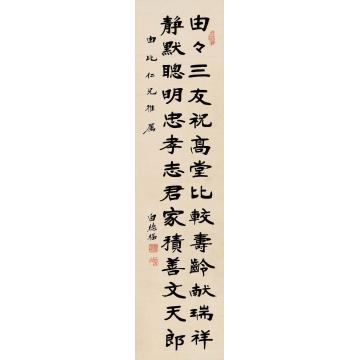 由々三友祝高堂比較壽齡献瑞祥
静默聰明忠孝志君家積善文天郎
由比仁兄雅属
白德楊